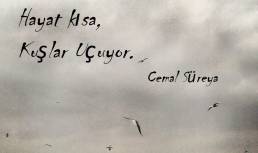 Hayat kısa,
Kuşlar Uçuyor.
Cemal Süreya